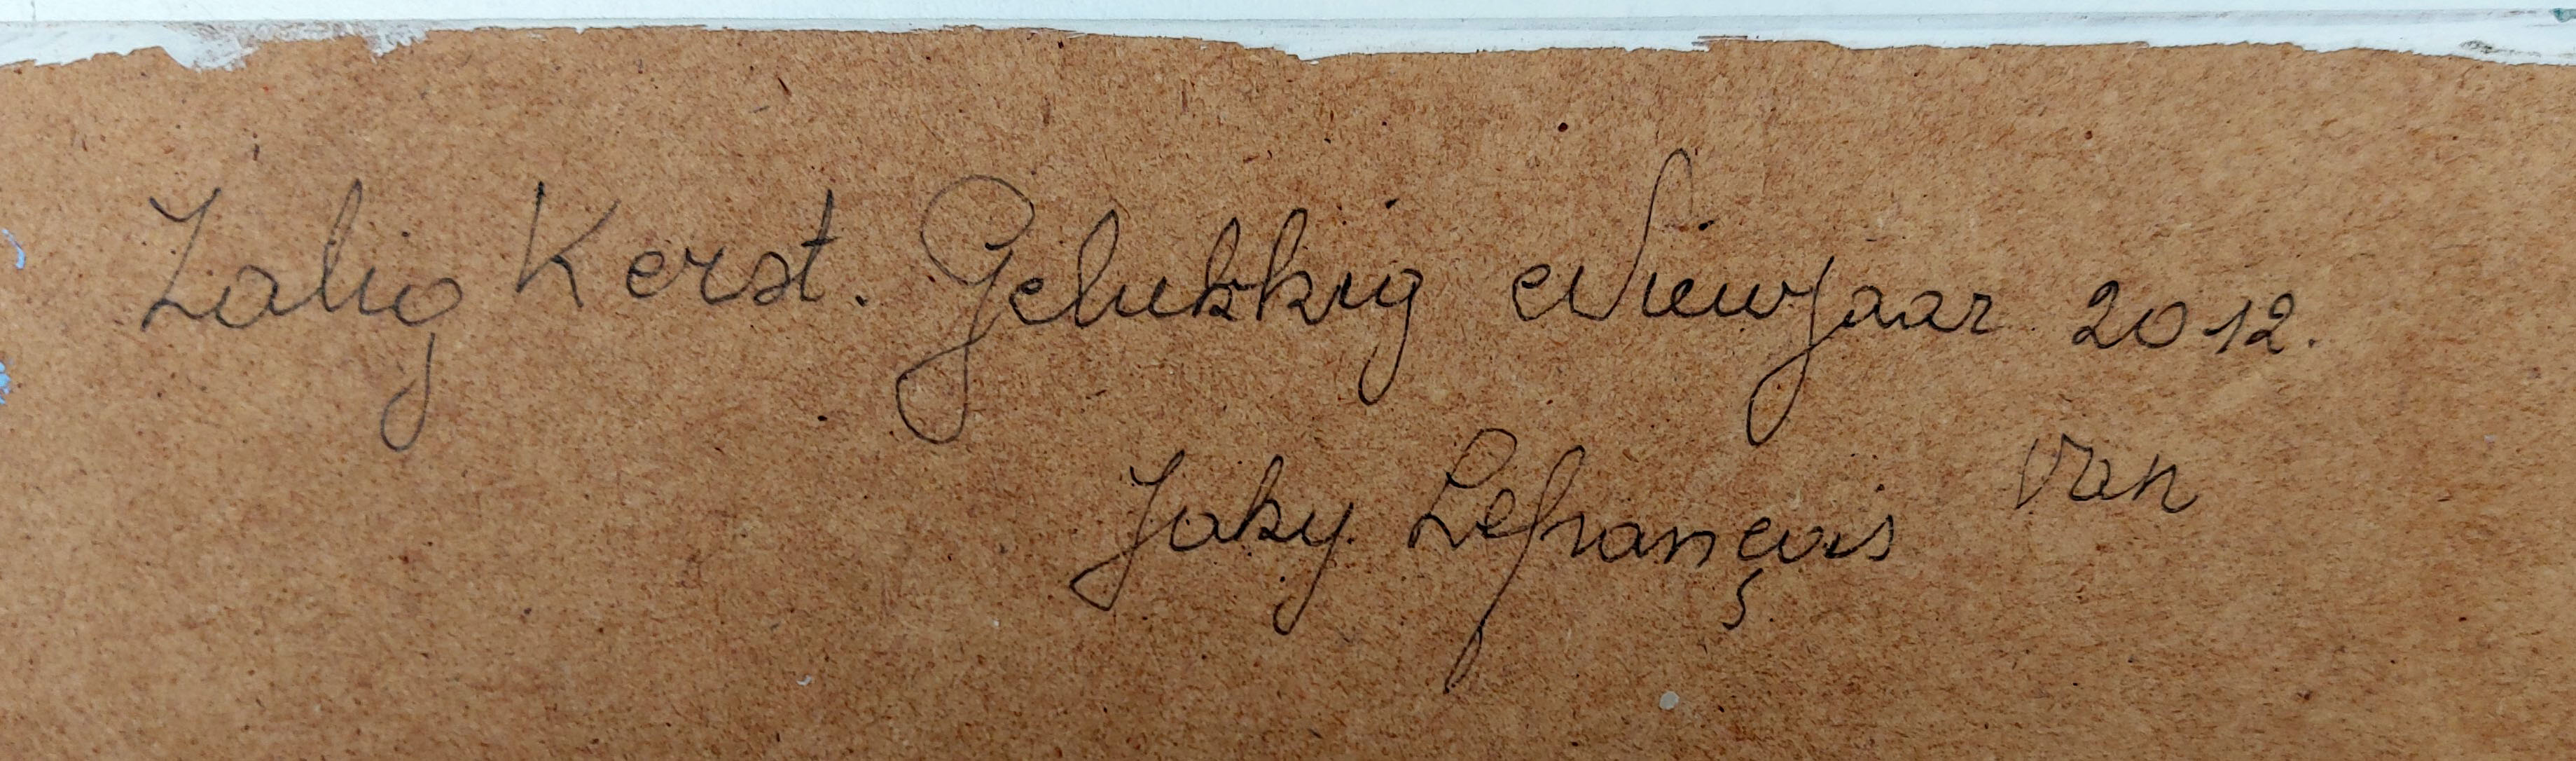 Zalig Kerst. Gelukkig Nieuwjaar 2012.
van
Jaky Lefrançois